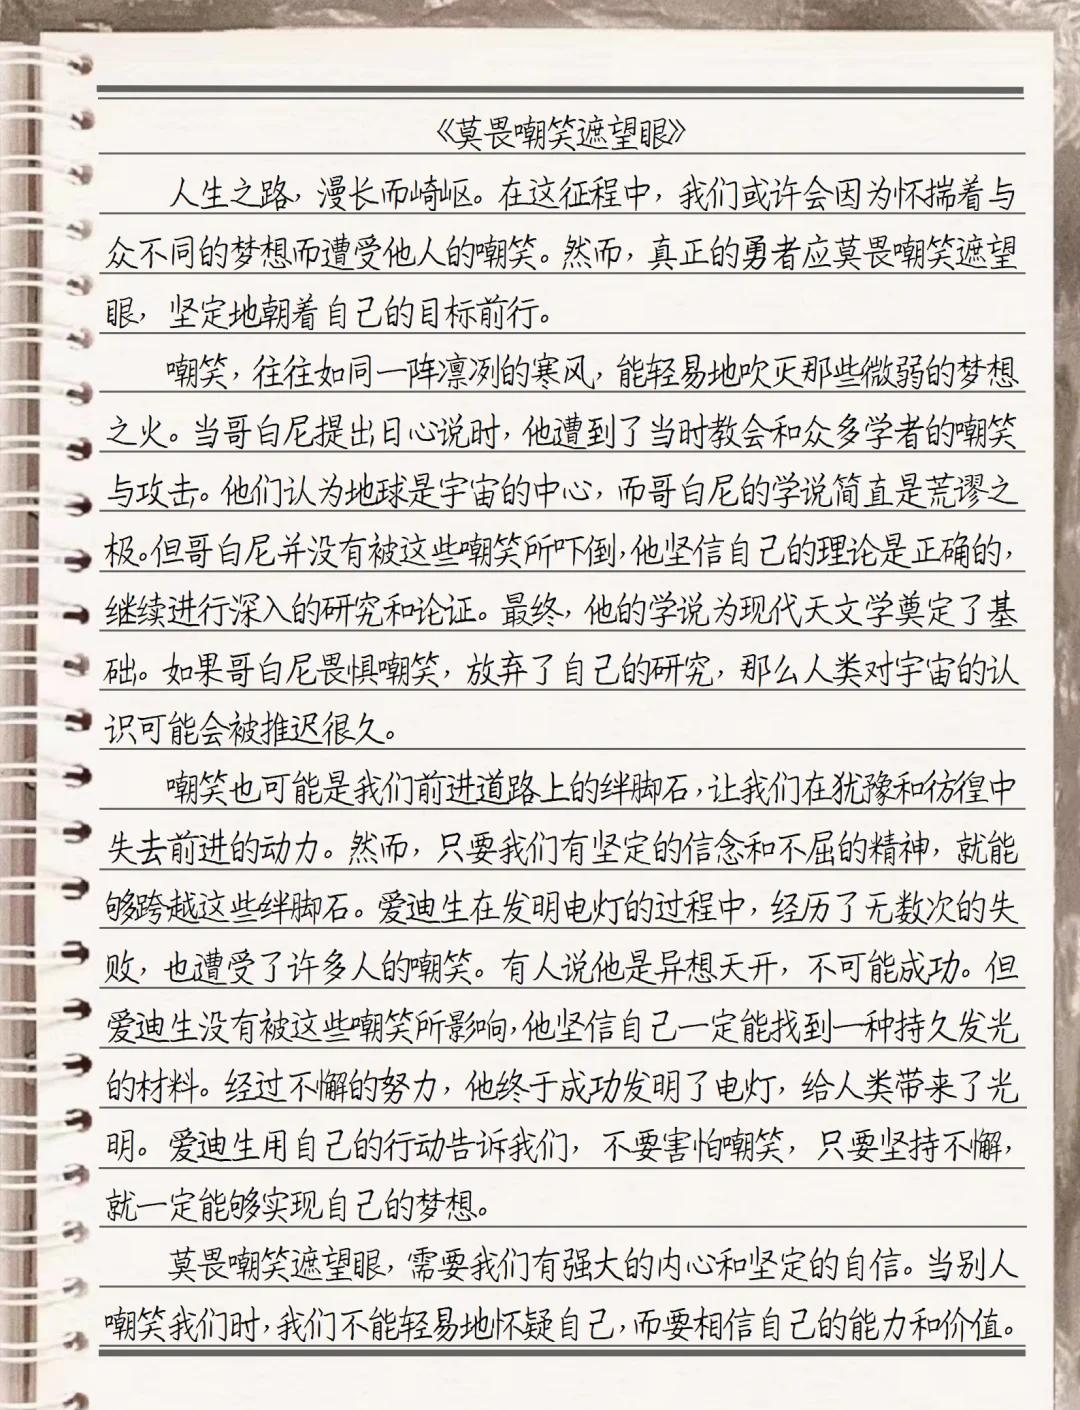 《莫畏嘲笑遮望眼》
人生之路，漫长而崎岖。在这征程中，我们或许会因为怀揣着与
众不同的梦想而遭受他人的嘲笑。然而，真正的勇者应莫畏嘲笑遮望
眼，坚定地朝着自己的目标前行。
嘲笑，往往如同一阵凛冽的寒风，能轻易地吹灭那些微弱的梦想
之火。当哥白尼提出日心说时，他遭到了当时教会和众多学者的嘲笑
与攻击。他们认为地球是宇宙的中心，而哥白尼的学说简直是荒谬之
极。但哥白尼并没有被这些嘲笑所吓倒，他坚信自己的理论是正确的，
继续进行深入的研究和论证。最终，他的学说为现代天文学奠定了基
础。如果哥白尼畏惧嘲笑，放弃了自己的研究，那么人类对宇宙的认
识可能会被推迟很久。
嘲笑也可能是我们前进道路上的绊脚石，让我们在犹豫和彷徨中
失去前进的动力。然而，只要我们有坚定的信念和不屈的精神，就能
够跨越这些绊脚石。爱迪生在发明电灯的过程中，经历了无数次的失
败，也遭受了许多人的嘲笑。有人说他是异想天开，不可能成功。但
爱迪生没有被这些嘲笑所影响，他坚信自己一定能找到一种持久发光
的材料。经过不懈的努力，他终于成功发明了电灯，给人类带来了光
明。爱迪生用自己的行动告诉我们，不要害怕嘲笑，只要坚持不懈，
就一定能够实现自己的梦想。
莫畏嘲笑遮望眼，需要我们有强大的内心和坚定的自信。当别人
嘲笑我们时，我们不能轻易地怀疑自己，而要相信自己的能力和价值。